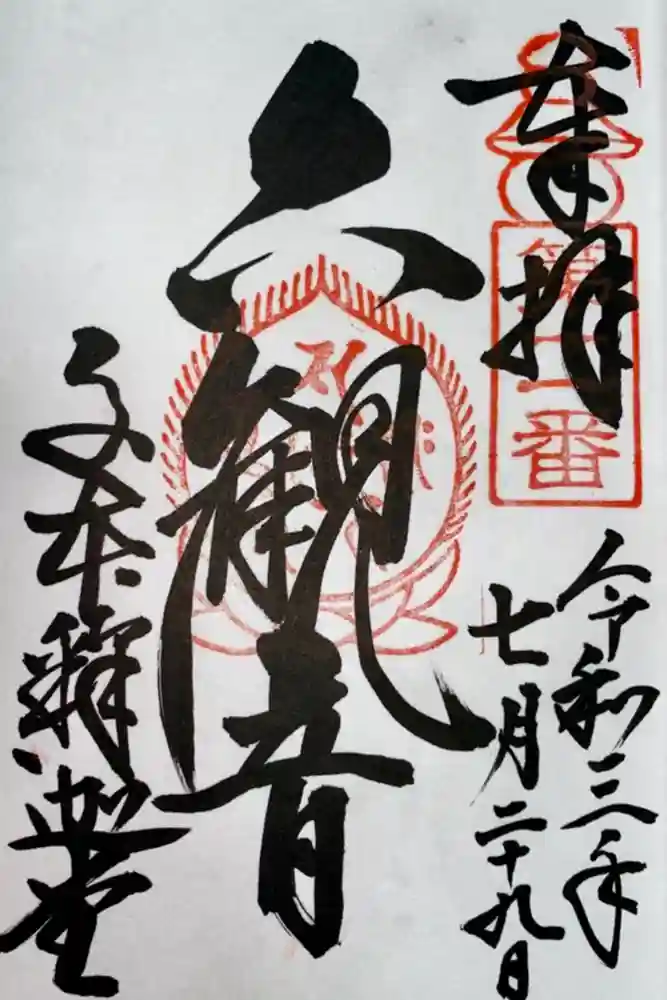 奉拝
第二番
令和三年
七月二十九日
六観音
千本釋迦堂